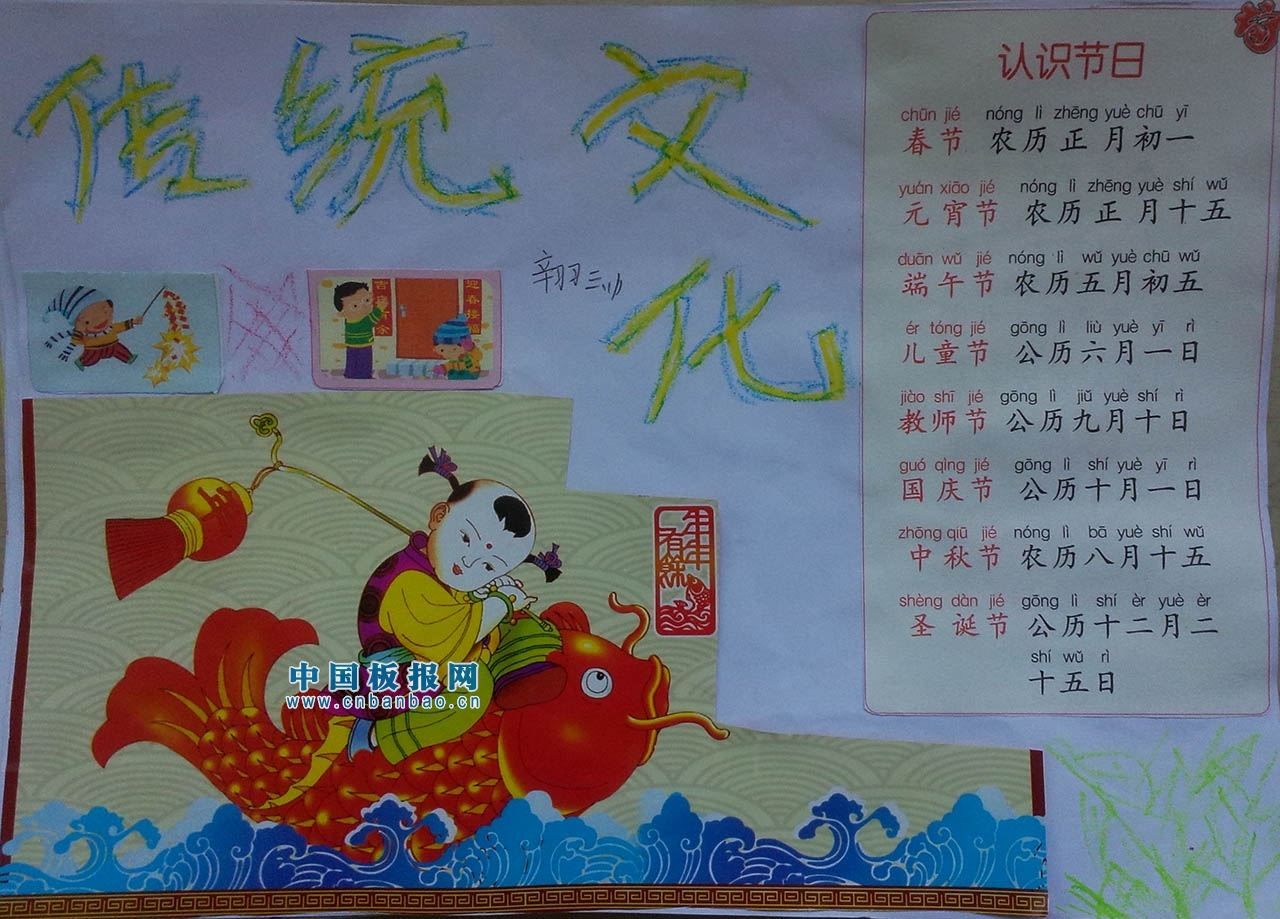 传统文
化
认识节日
chūn jié nóng lì zhēng yuè chū yī
春节 农历正月初一
yuán xiāo jié nóng lì zhēng yuè shí wǔ
元宵节 农历正月十五
duān wǔ jié nóng lì wǔ yuè chū wǔ
端午节 农历五月初五
ér tóng jié gōng lì liù yuè yī rì
儿童节 公历六月一日
jiào shī jié gōng lì jiǔ yuè shí rì
教师节 公历九月十日
guó qìng jié gōng lì shí yuè yī rì
国庆节 公历十月一日
zhōng qiū jié nóng lì bā yuè shí wǔ
中秋节 农历八月十五
shèng dàn jié gōng lì shí èr yuè èr
圣诞节 公历十二月二
shí wǔ rì
十五日
迎春接福
年年有餘
中国板报网
www.cnbanbao.cn